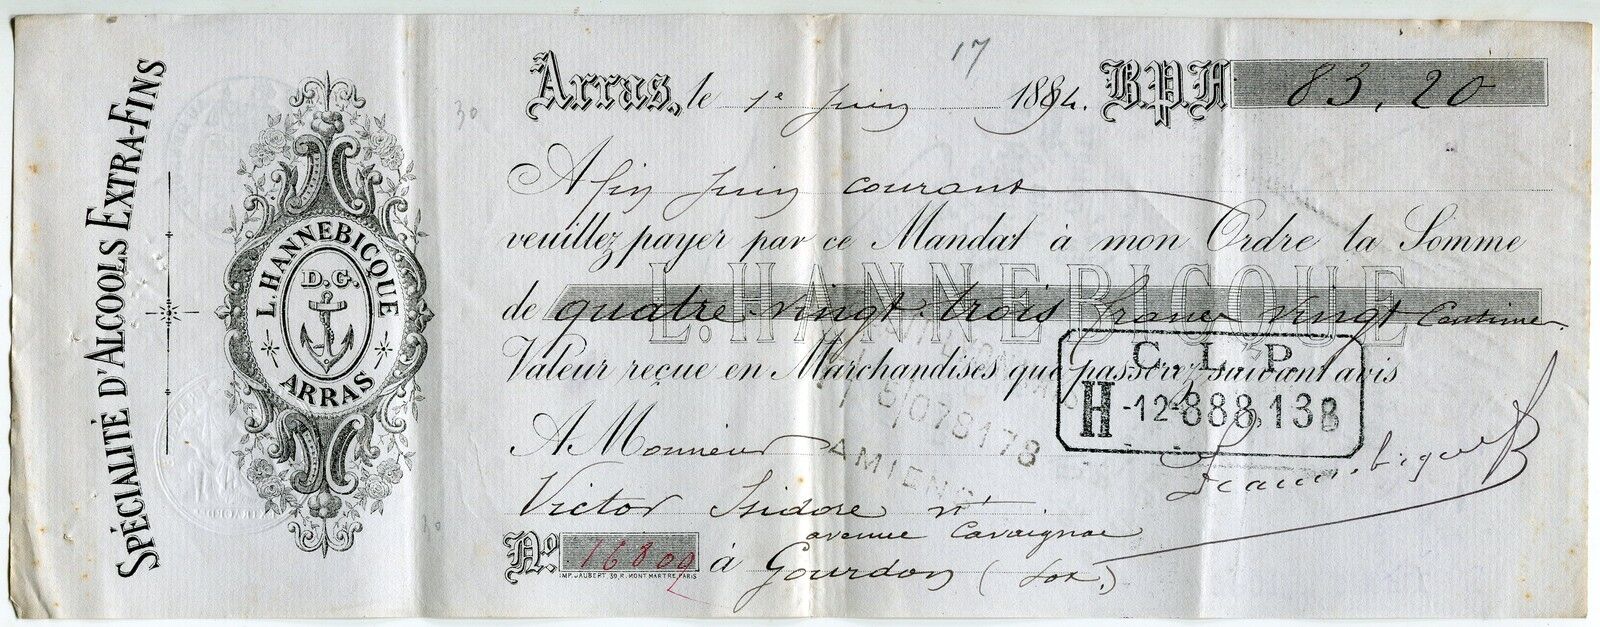 SPÉCIALITÉ D'ALCOOLS EXTRA-FINS
L. HANNEBICQUE
D.G.
ARRAS
17
30
Arras, le 1e Juin 1884. B.P.F 83,20
A fin Juin courant
veuillez payer par ce Mandat à mon Ordre la Somme
de quatre-vingt-trois francs vingt Centimes
L. HANNEBICQUE
Valeur reçue en Marchandises que passerez suivant avis
C. L. P.
H -12-888,138
078178
AMIENS
A Monsieur
Victor Isidore nt
avenue Cavaignac
No. 16809 à Gourdon (Lot)
IMP. JAUBERT, 39, R. MONTMARTRE, PARIS